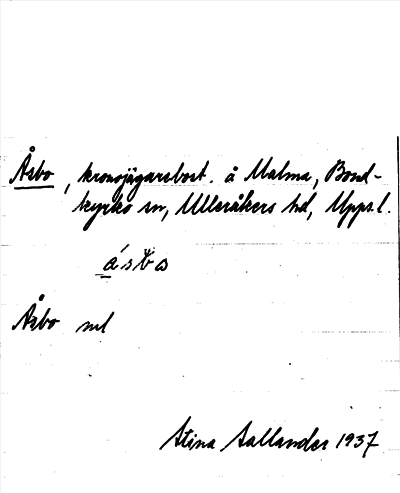 Åsbo, kronojägarebost. å Malma, Bond-
kyrko sn, Ulleråkers hd, Uppsl.
Åsbo
Stina Sallander 1937